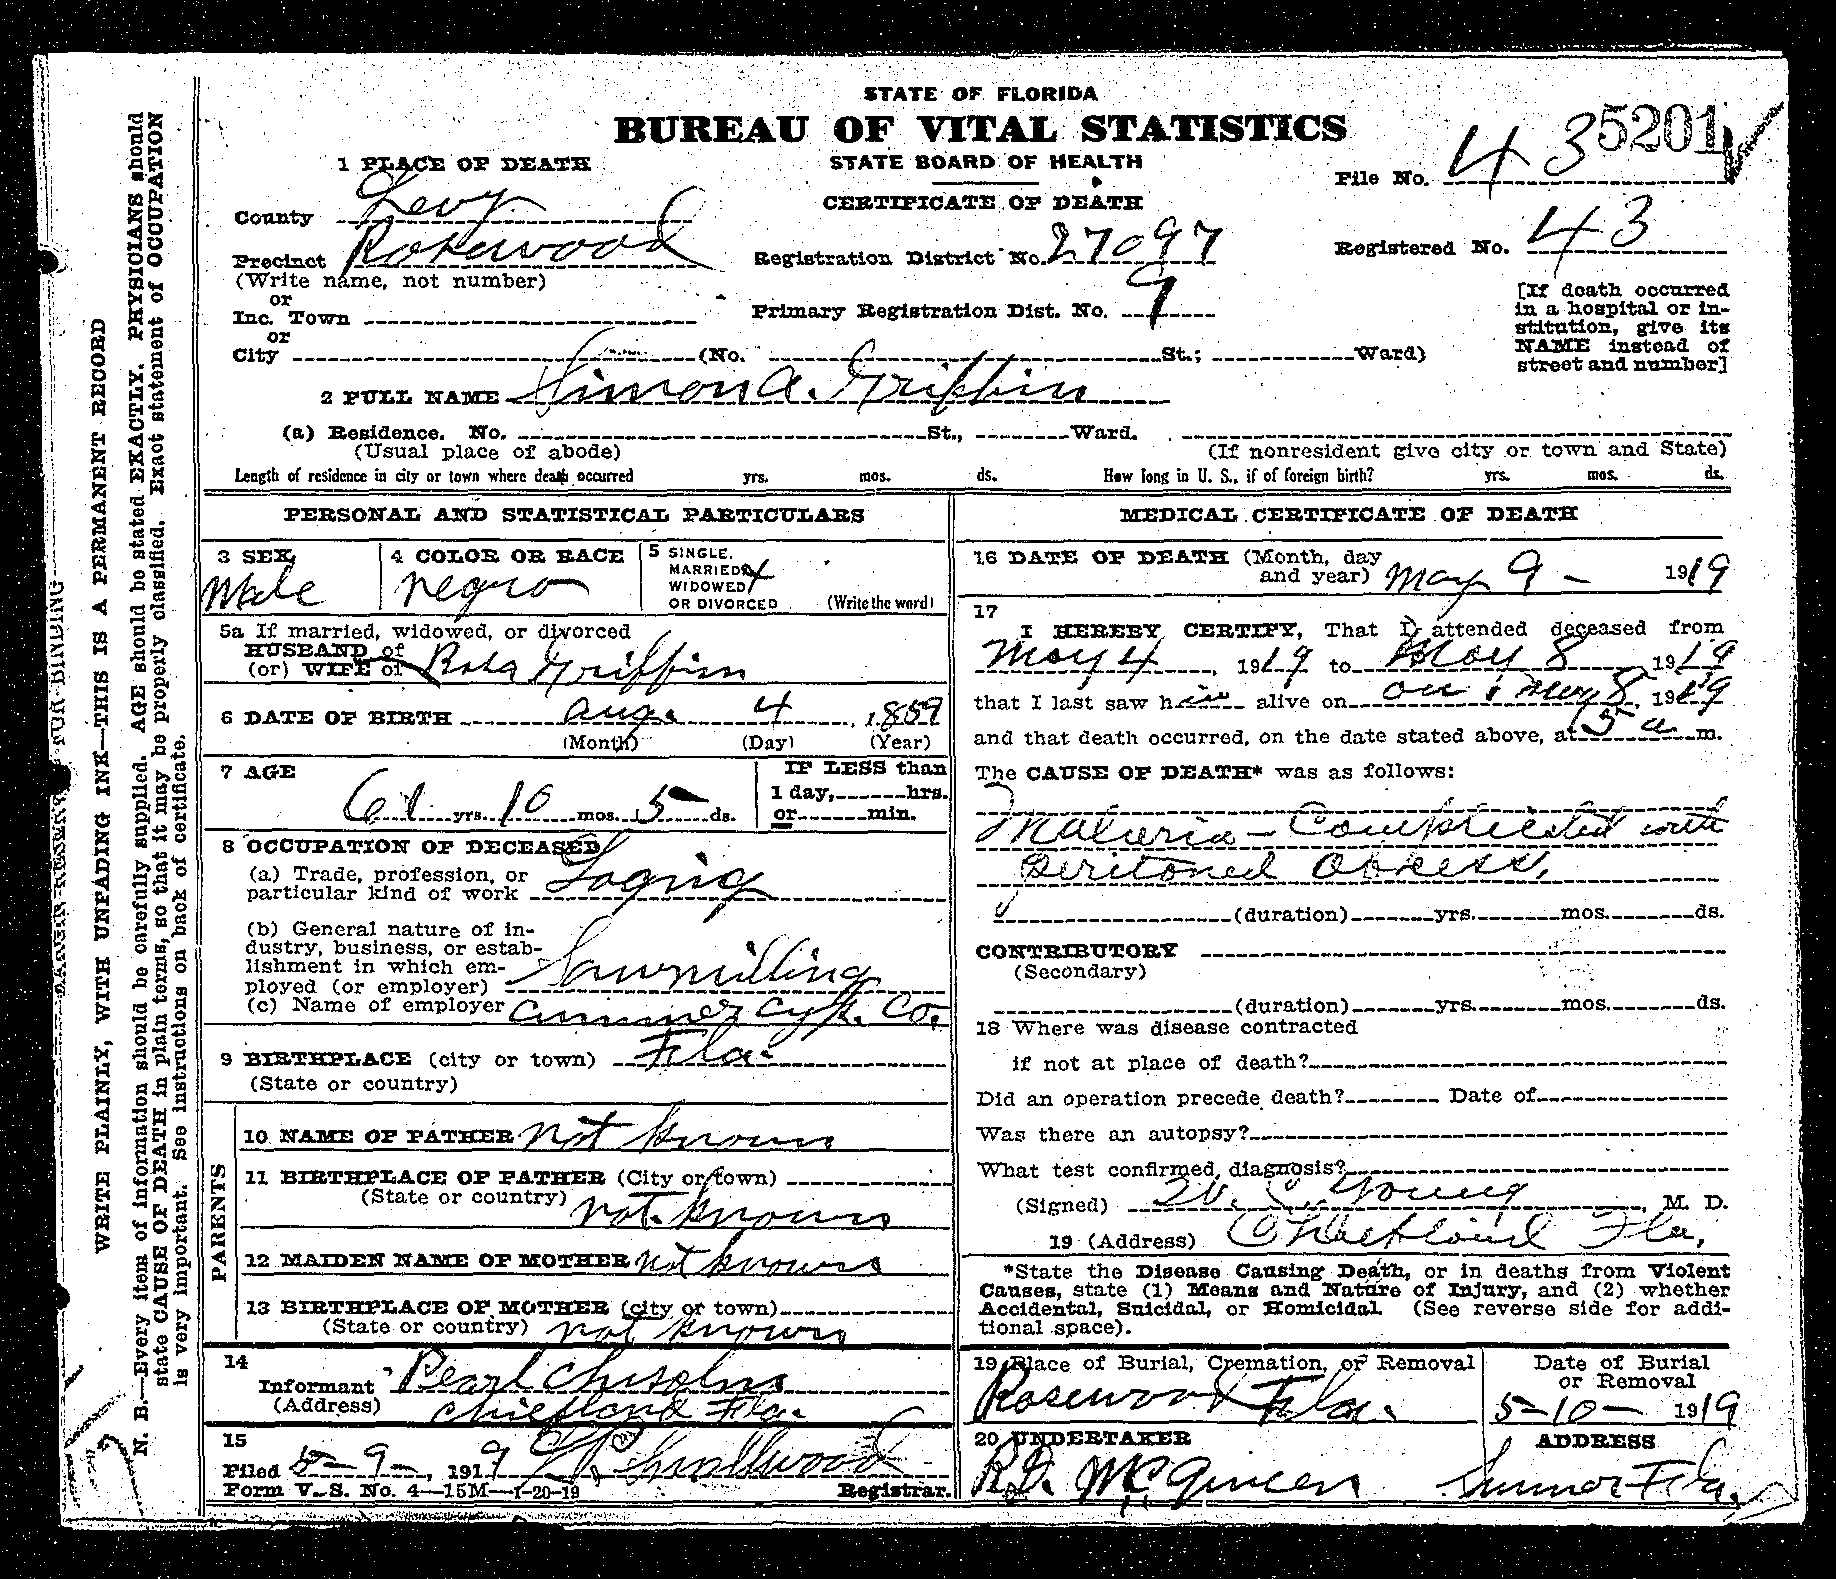 STATE OF FLORIDA
BUREAU OF VITAL STATISTICS
STATE BOARD OF HEALTH
CERTIFICATE OF DEATH
5201
File No. 43
Registered No. 43
1 PLACE OF DEATH
County Levy
Precinct Rosewood
(Write name, not number)
or
Inc. Town
or
City (No. St.; Ward)
Registration District No. 27097
Primary Registration Dist. No. 9
[If death occurred
in a hospital or in-
stitution, give its
NAME instead of
street and number]
2 FULL NAME Simon A. Griffin
(a) Residence. No. St., Ward.
(Usual place of abode) (If nonresident give city or town and State)
Length of residence in city or town where death occurred yrs. mos. ds. How long in U. S., if of foreign birth? yrs. mos. ds.
PERSONAL AND STATISTICAL PARTICULARS
3 SEX Male
4 COLOR OR RACE negro
5 SINGLE,
MARRIED, X
WIDOWED
OR DIVORCED (Write the word)
5a If married, widowed, or divorced
HUSBAND of
(or) WIFE of Griffin
6 DATE OF BIRTH Aug. 4, 1859
(Month) (Day) (Year)
7 AGE 61 yrs. 10 mos. 5 ds.
IF LESS than
1 day, hrs.
or min.
8 OCCUPATION OF DECEASED
(a) Trade, profession, or
particular kind of work Loging
(b) General nature of in-
dustry, business, or estab-
lishment in which em-
ployed (or employer) Sawmilling
(c) Name of employer Cummer Cyp. Co.
9 BIRTHPLACE (city or town) Fla.
(State or country)
PARENTS
10 NAME OF FATHER not known
11 BIRTHPLACE OF FATHER (City or town)
(State or country) not known
12 MAIDEN NAME OF MOTHER not known
13 BIRTHPLACE OF MOTHER (city or town)
(State or country) not known
14
Informant Pearl Chisolm
(Address) Chiefland Fla.
15
Filed 5-9-, 1919 Smallwood
Form V. S. No. 4—15M—1-20-19 Registrar.
MEDICAL CERTIFICATE OF DEATH
16 DATE OF DEATH (Month, day
and year) May 9 - 1919
17
I HEREBY CERTIFY, That I attended deceased from
May 4, 1919 to May 8 1919
that I last saw him alive on on May 8, 1919
and that death occurred, on the date stated above, at 5 a m.
The CAUSE OF DEATH* was as follows:
Malaria - Complicated with
peritoneal abscess.
(duration) yrs. mos. ds.
CONTRIBUTORY
(Secondary)
(duration) yrs. mos. ds.
18 Where was disease contracted
if not at place of death?
Did an operation precede death? Date of
Was there an autopsy?
What test confirmed diagnosis?
(Signed) W. S. Young, M. D.
19 (Address) Chiefland Fla.
*State the Disease Causing Death, or in deaths from Violent
Causes, state (1) Means and Nature of Injury, and (2) whether
Accidental, Suicidal, or Homicidal. (See reverse side for addi-
tional space).
19 Place of Burial, Cremation, or Removal
Rosewood Fla.
Date of Burial
or Removal
5-10- 1919
20 UNDERTAKER
ADDRESS
Sumner Fla.
MARGIN RESERVED FOR BINDING
WRITE PLAINLY, WITH UNFADING INK—THIS IS A PERMANENT RECORD
N. B.—Every item of information should be carefully supplied. AGE should be stated EXACTLY. PHYSICIANS should
state CAUSE OF DEATH in plain terms, so that it may be properly classified. Exact statement of OCCUPATION
is very important. See instructions on back of certificate.